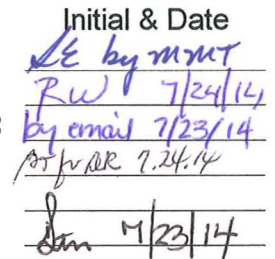 Initial & Date
LE by MMT
RW 7/24/14
by email 7/23/14
for DR 7.24.14
7/23/14